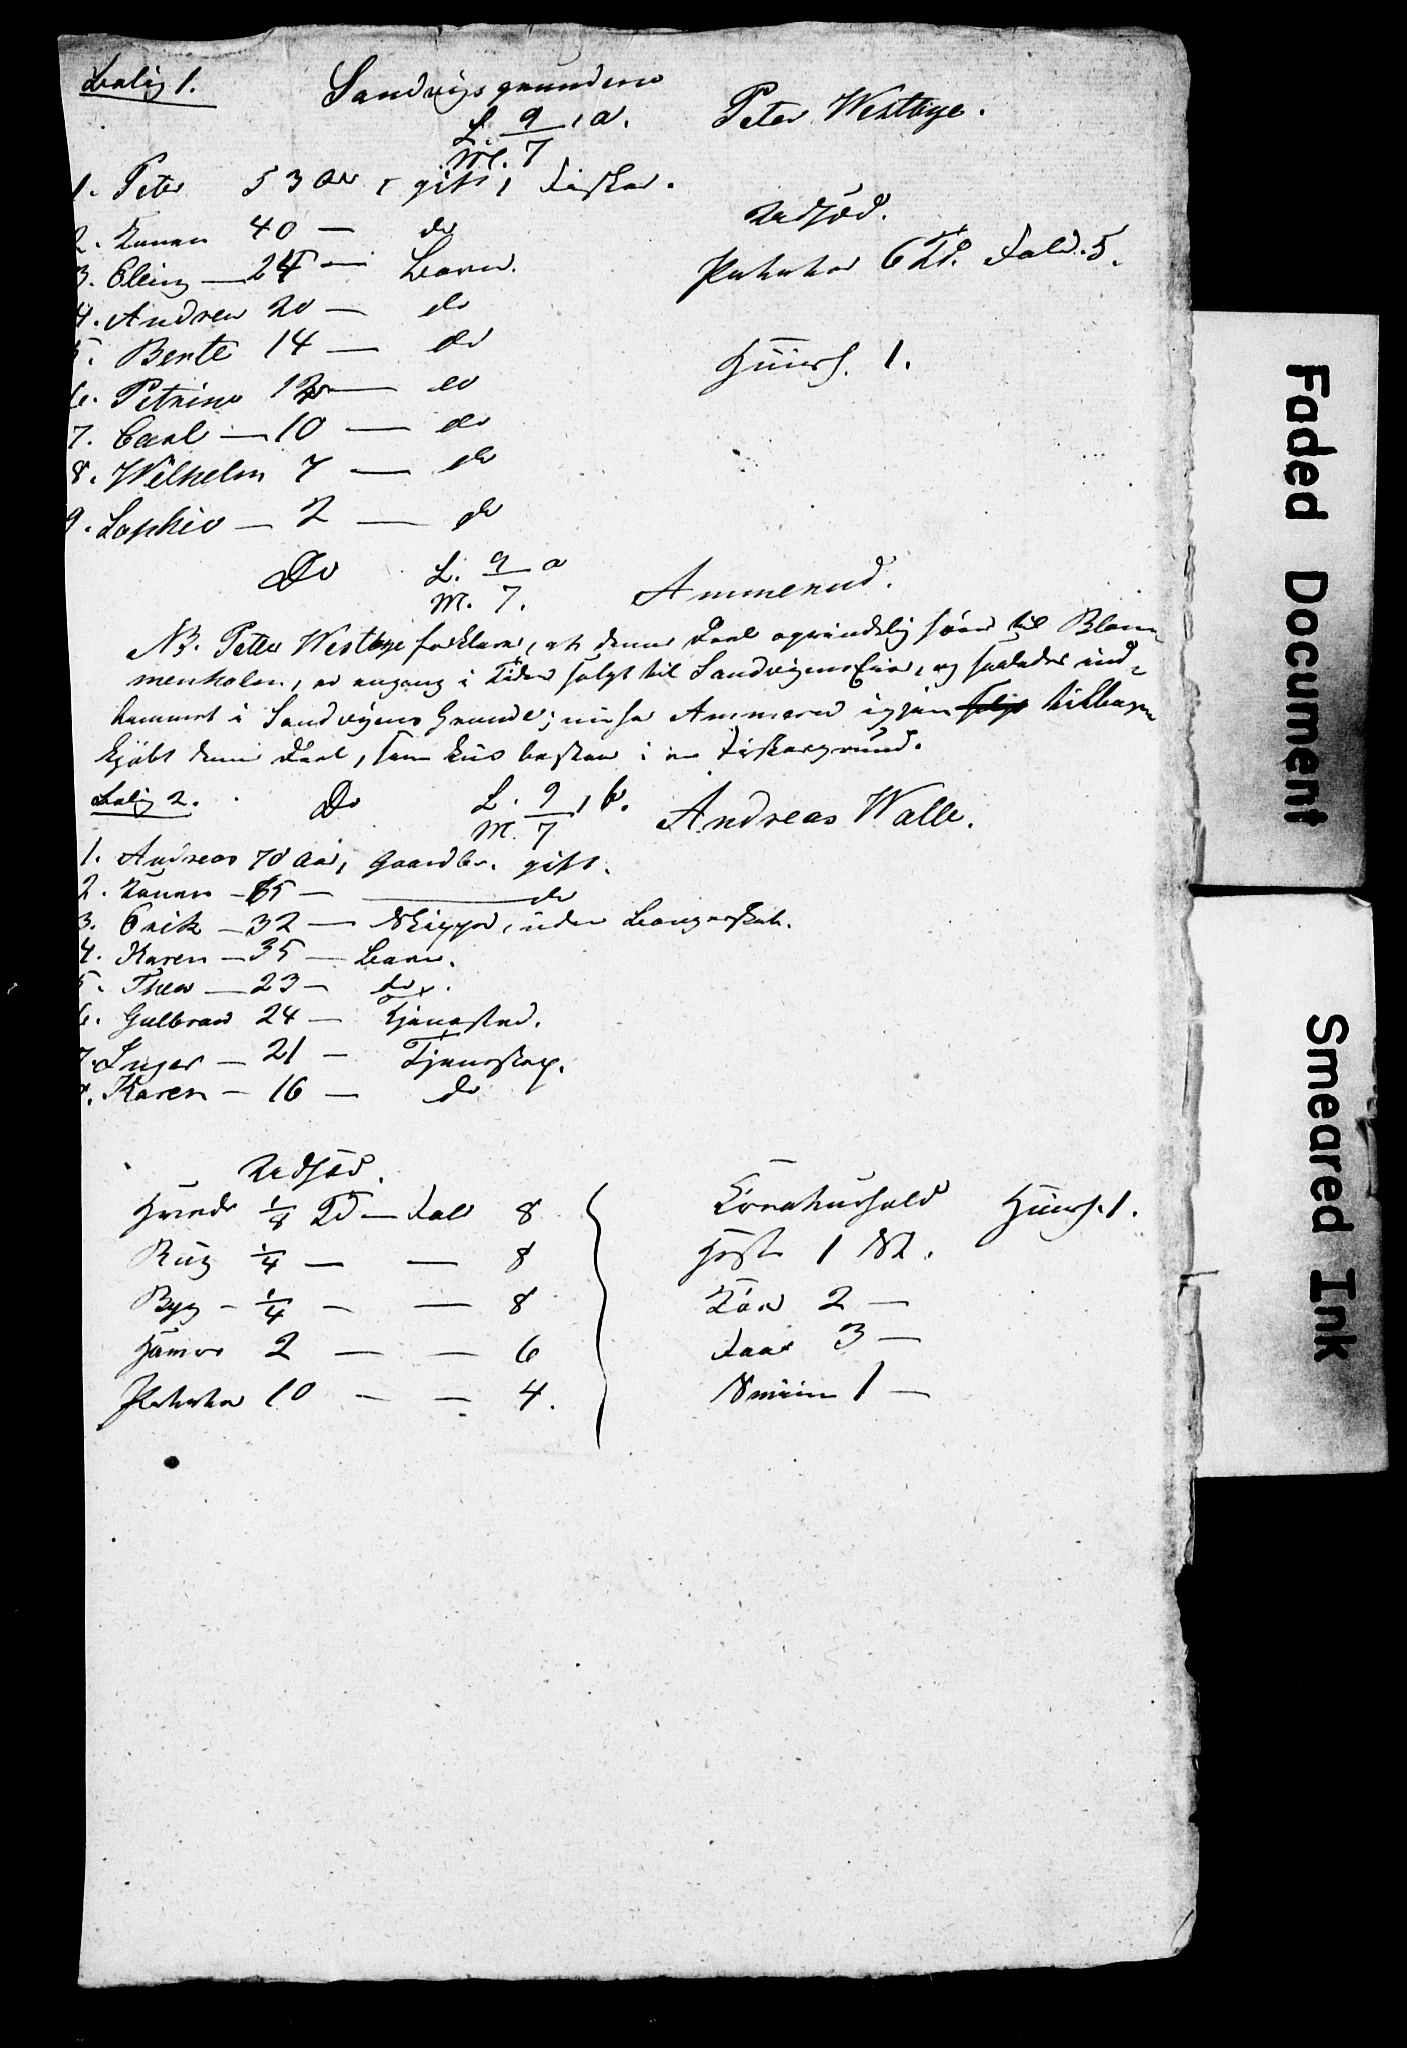 Bolig 1. Sandvigsgrundene
L. 9 , a. Peter Westbye.
M. 7
1. Peter 53 Aar, gift, Fisker.
Udsæd.
2. Karen 40 — do
Poteter 6 Td. Fold. 5.
3. Elling — 24 — Barn.
4. Andrea 20 — do
5. Bente 14 — do
Huush. 1.
6. Petrine 12 — do
7. Carl — 10 — do
8. Wilhelm 7 — do
9. Sophie — 2 — do
Do L. 9 a Ammerud.
M. 7.
NB. Peter Westbye forklarer, at denne Deel oprindelig hører til Blom-
menholm, er engang i Tiden solgt til Sandvigens Eier, og saaledes ind-
kommet i Sandvigens Grunde; men har Ammerud igjen solgt tilbage-
kjøbt denne Deel, som kun bestaar i en Fiskergrund.
Bolig 2. Do L. 9 , b. Andreas Walle.
M. 7
1. Andreas 70 Aar, Gaardbr. gift.
2. Karen — 65 — do
3. Erik — 32 — Skipper, uden Borgerskab.
4. Karen — 35 — Barn.
5. Thea — 23 — do.
6. Gulbrand 24 —
7. Inger — 21 — Tjeneste
8. Karen — 16 — do
Udsæd.
Hvede 1/8 Td — Fold 8 Kreaturhold Huush. 1.
Rug 1/4 — — 8 Heste 1 St.
Byg — 1/4 — — 8 Køer 2 —
Havre 2 — — 6 Faar 3 —
Poteter 10 — — 4. Sviin 1 —
Faded Document
Smeared Ink